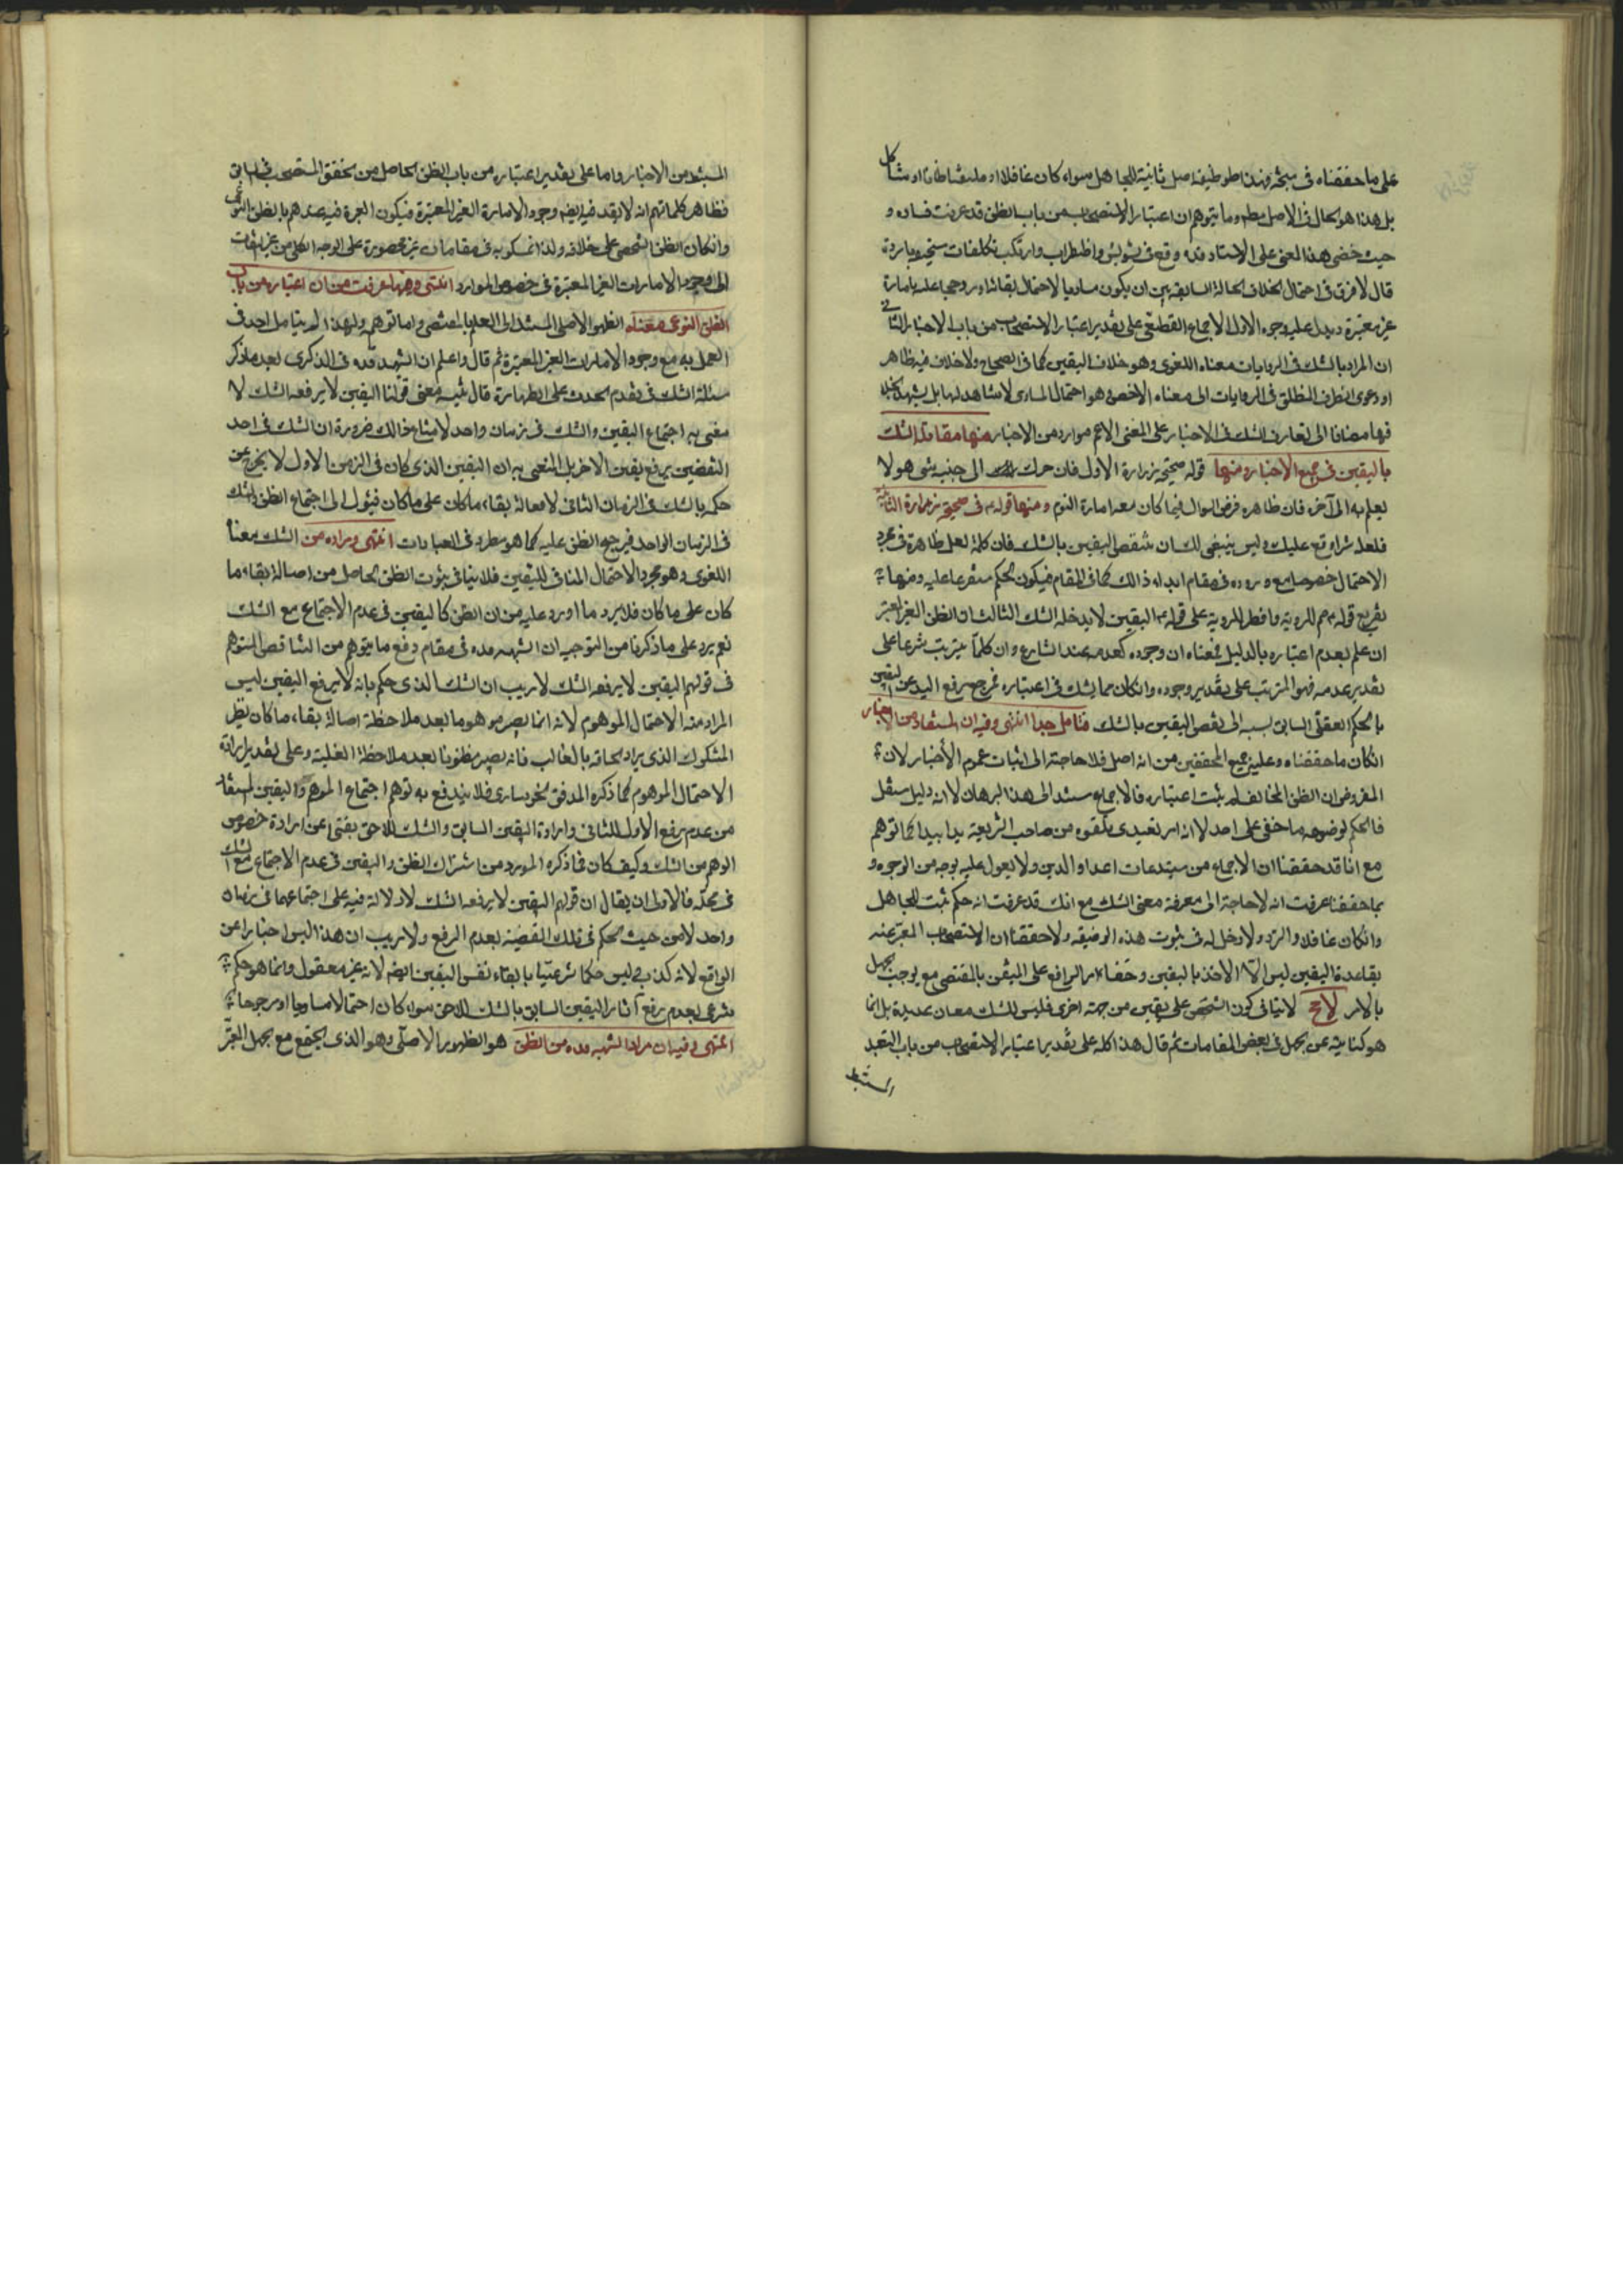 على ما حققناه فى مبحثه وهذا هو وظيفة اصل ثانية للجاهل سواء كان غافلا او ملتفتا ظانا او شاكا
بل هذا هو الحال فى الاصل مطم وما يتوهم ان اعتبار الاستصحاب من باب الظن قد عرفت فساده و
حيث خفى هذا المعنى على الاستاد قده وقع فى تشويش واضطراب وارتكب تكلفات سخيفة باردة
قال لا فرق فى احتمال الخلاف الحالة السابقة بين ان يكون مساويا لاحتمال بقائه او روحجا عليه بامارة
غير معتبرة ويدل عليه وجوه الاول الاجماع القطعى على تقدير اعتبار الاستصحاب من باب الاخبار الثانى
ان المراد بالشك فى الروايات معناه اللغوى وهو خلاف اليقين كما فى الصحاح ولا خلاف فيه ظاهر
او دعوى انصراف المطلق فى الروايات الى معناه الاخص وهو احتمال المساوى لا شاهد لها بل يشهد بخلا
فها مضافا الى تعارف الشك فى الاخبار على المعنى الاعم موارد من الاخبار منها مقابلة الشك
باليقين فى جميع الاخبار ومنها قوله صحيحة زرارة الاولى فان حرك الى جنبه شى هو لا
يعلم به الى آخره فان ظاهره فرض السوال فيما كان معه امارة النوم ومنها قوله ع فى صحيحة زرارة الثانية
فلعله شى اوقع عليك وليس ينبغى لك ان تنقض اليقين بالشك فان كلمة لعل ظاهرة فى مجرد
الاحتمال خصوصا مع وروده فى مقام ابداء ذالك كما فى المقام فيكون الحكم متفرعا عليه ومنها
تفريع قوله ع صم للروية وافطر للروية على قوله ع اليقين لا يدخله الشك الثالث ان الظن الغير المعتبر
ان علم بعدم اعتباره بالدليل فمعناه ان وجوده كعدمه عند الشارع وان كلما يترتب شرعا على
تقدير عدمه فهو المترتب على تقدير وجوده وان كان مما يشك فى اعتباره فمرجع رفع اليد عن اليقين
بالحكم العقلى السابق بسببه الى نقض اليقين بالشك فتامل جدا انتهى وفيه ان المستفاد من الاخبار
ان كان ما حققناه وعليه جميع المحققين من انه اصل فلا حاجة الى اثبات عموم الأخبار لان
المفروض ان الظن المخالف لم يثبت اعتباره فالاجماع مستند الى هذا البرهان لا انه دليل مستقل
فالحكم لوضوحه ما خفى على احد لا انه امر تعبدى تلقوه من صاحب الشريعة يدا بيد كما توهم
مع انا قد حققنا ان الاجماع من مبتدعات اعداء الدين ولا يعول عليه بوجه من الوجوه و
بما حققنا عرفت انه لا حاجة الى معرفة معنى الشك مع انك قد عرفت انه حكم ثبت للجاهل
وان كان غافلا والتردد لا دخل له فى ثبوت هذه الوظيفه ولا حققنا ان الاستصحاب المعبر عنه
بقاعدة اليقين ليس الا الاخذ باليقين وخفاء امر الرافع على المتيقن بالمقتضى مع يوجب الجهل
بالامر لا ينافى كون الشخص على يقين من جهة اخرى فليس للشك معان عديدة بل انما
هو كناية عن الجهل فى بعض المقامات ثم قال هذا كله على تقدير اعتبار الاستصحاب من باب التعبد
المستنبط
المستنبط من الاخبار واما على تقدير اعتباره من باب الظن الحاصل من تحقق المستصحب فى السابق
فظاهر كلماتهم انه لا يقدح فيه ايضا وجود الامارة الغير المعتبرة فيكون العبرة فيه عندهم بالظن النوعى
وان كان الظن الشخصى على خلافه ولذا تمسكوا به فى مقامات غير محصورة على الوجه الكلى من غير التفات
الى وجود الامارات الغير المعتبرة فى خصوص الموارد انتهى وفيه ما عرفت من ان اعتباره من باب
الظن النوعى معناه الظهور الاصلى المستند الى العلم بالمقتضى واما توهمه ولهذا لم يتامل احد فى
العمل به مع وجود الامارات الغير المعتبرة ثم قال واعلم ان الشهيد قده فى الذكرى بعد ما ذكر
مسئلة الشك فى تقدم الحدث على الطهارة قال تنبيه معنى قولنا اليقين لا يرفعه الشك لا
نعنى به اجتماع اليقين والشك فى زمان واحد لامتناع ذالك ضرورة ان الشك فى احد
النقيضين يرفع يقين الاخر بل المعنى به ان اليقين الذى كان فى الزمن الاول لا يخرج عن
حكمه بالشك فى الزمان الثانى لاصالة بقاء ما كان على ما كان فيئول الى اجتماع الظن والشك
فى الزمان الواحد فيرجح الظن عليه كما هو مطرد فى العبادات انتهى ومراده من الشك معناه
اللغوى وهو مجرد الاحتمال المنافى لليقين فلا ينافى ثبوت الظن الحاصل من اصالة بقاء ما
كان على ما كان فلا يرد ما اورد عليه من ان الظن كاليقين فى عدم الاجتماع مع الشك
نعم يرد على ما ذكرنا من التوجيه ان الشهيد قده فى مقام دفع ما يتوهم من التناقض المتوهم
فى قولهم اليقين لا يرفعه الشك لا ريب ان الشك الذى حكم بانه لا يرفع اليقين ليس
المراد منه الاحتمال الموهوم لانه انما يصير موهوما بعد ملاحظة اصالة بقاء ما كان نظير
المشكوك الذى يراد الحاقه بالغالب فانه يصير مظنونا بعد ملاحظة الغلبة وعلى تقدير ارادة
الاحتمال الموهوم كما ذكره المدقق الخونسارى فلا يندفع به توهم اجتماع الوهم واليقين المستفاد
من عدم رفع الاول للثانى وارادة اليقين السابق والشك اللاحق يغنى عن ارادة خصوص
الوهم من الشك وكيف كان فما ذكره المورد من اشتراك الظن واليقين فى عدم الاجتماع مع الشك
فى محله فالاولى ان يقال ان قولهم اليقين لا يرفعه الشك لا دلالة فيه على اجتماعهما فى زمان
واحد لا من حيث الحكم فى تلك القضية بعدم الرفع ولا ريب ان هذا ليس اخبارا عن
الواقع لانه كذب وليس حكما شرعيا بابقاء نفس اليقين ايضا لانه غير معقول وانما هو حكم
شرعى بعدم رفع آثار اليقين السابق بالشك اللاحق سواء كان احتمالا مساويا او مرجوحا
انتهى وفيه ان مراد الشهيد قده من الظن هو الظهور الاصلى وهو الذى يجتمع مع الجهل